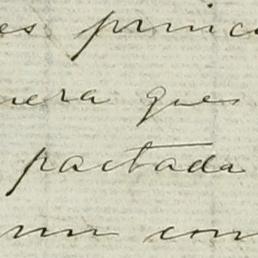 es princ
nera que
pactada
un con